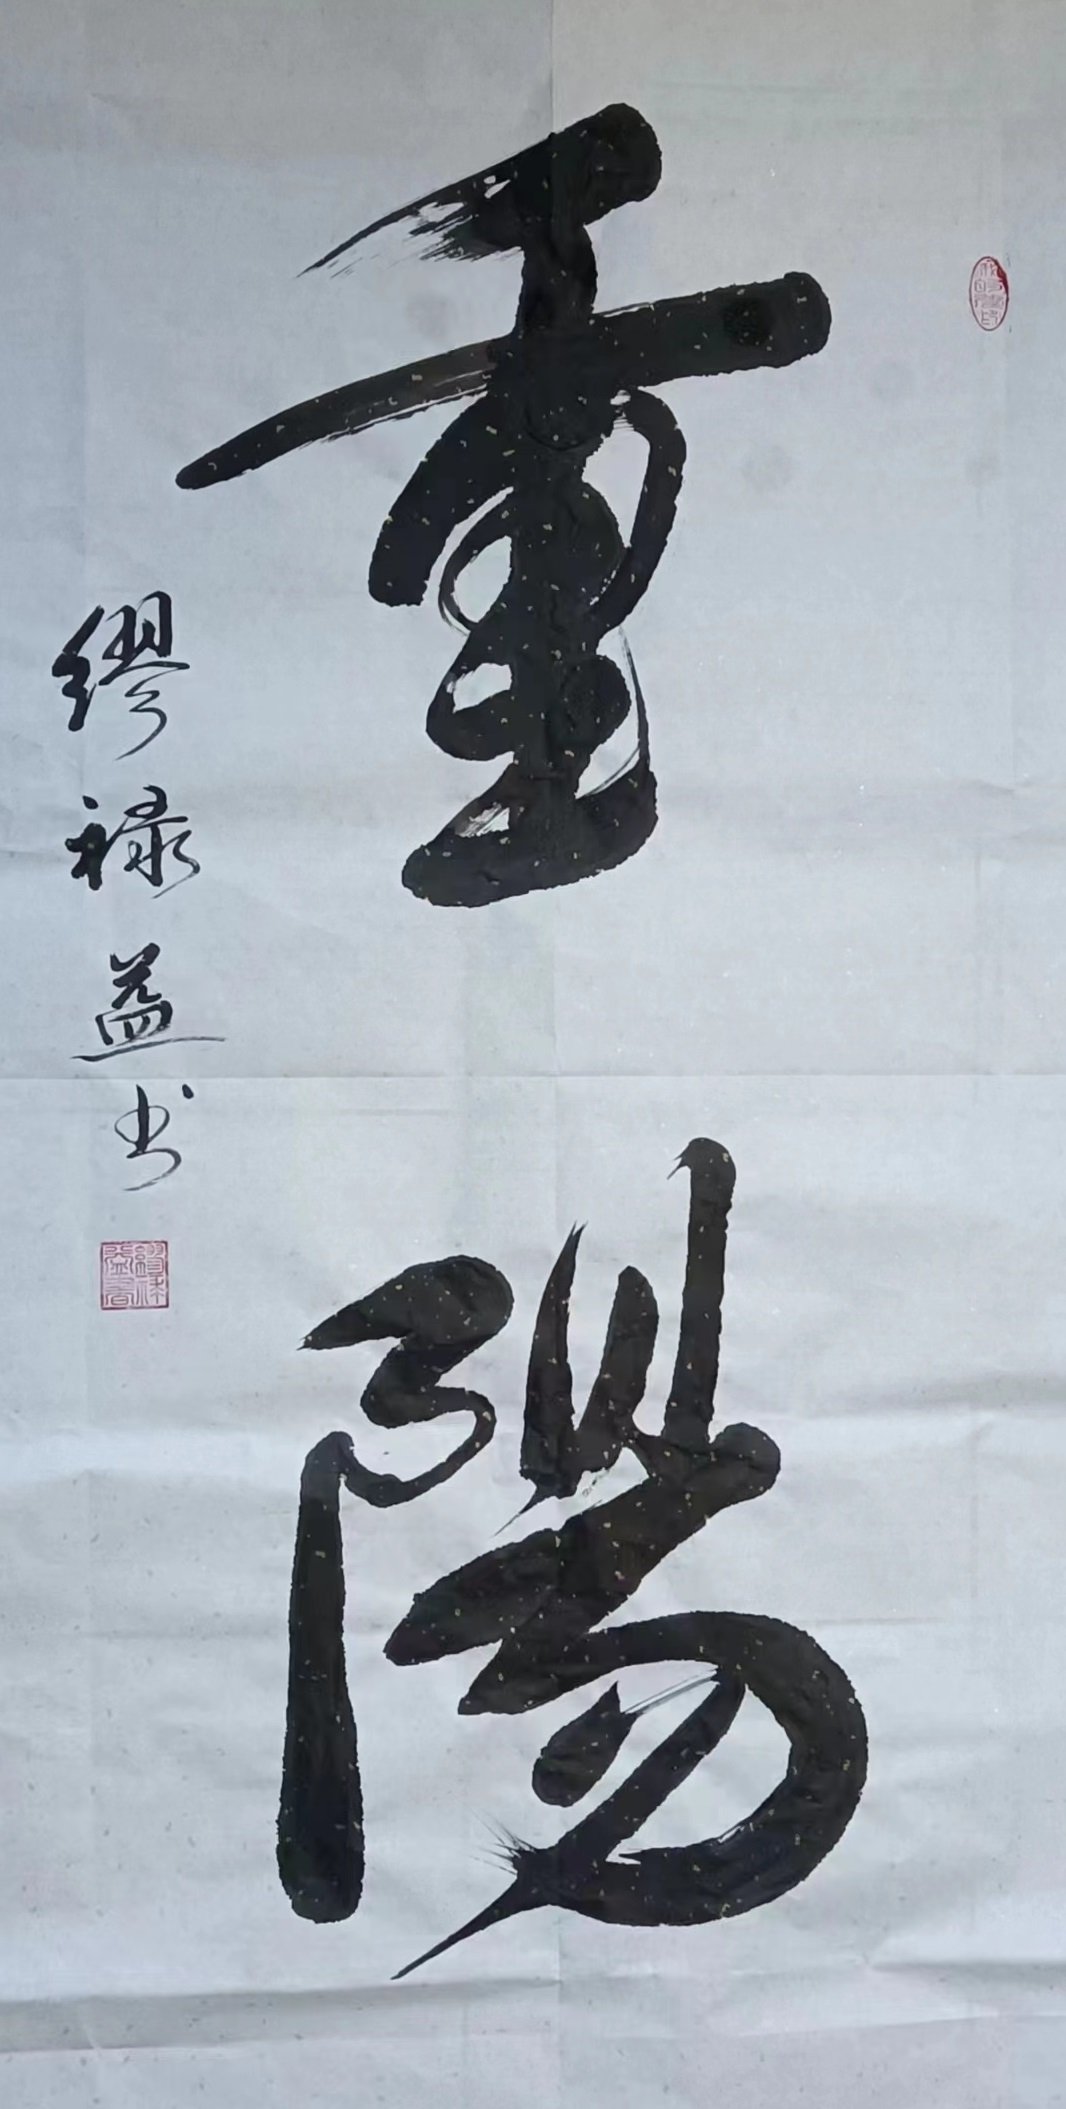 重陽
缪禄益书